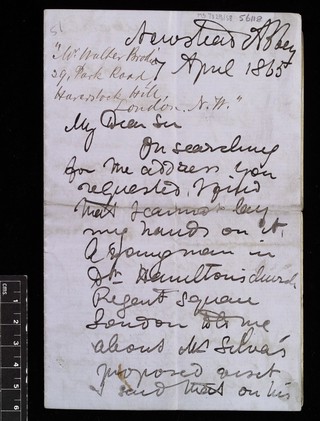 51
56118
Newstead Abbey
7 April 1865
"Mr Walter Brodie
29, Park Road
Haverstock Hill,
London. N.W."
My Dear Sir
On searching
for the address you
requested, I find
that I cannot lay
my hands on it.
A young man in
Dr. Hamilton's church
Regent Square
London told me
about Mr Silva's
proposed visit
I said that on his
CMS
1
2
3
4
5
6